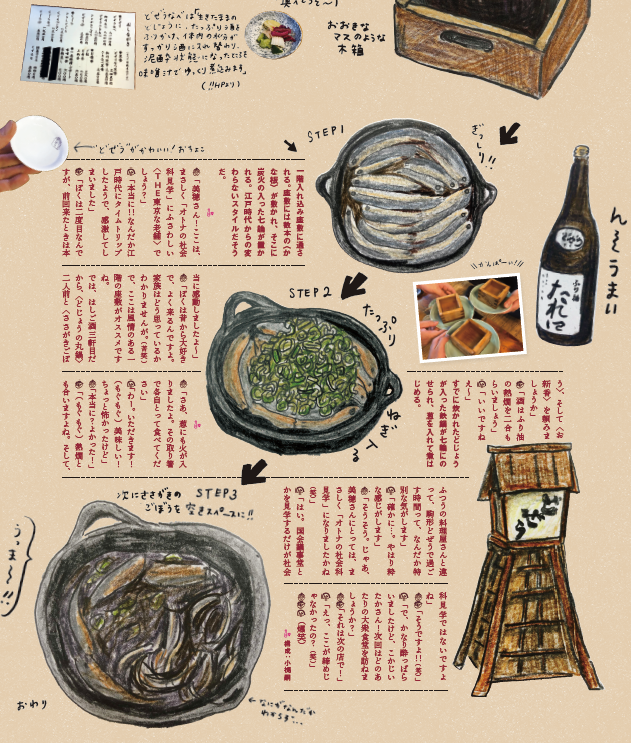 おおきな
マスのような
木箱
どぜうなべは「生きたままの
どじょうに、たっぷり酒を
ぶりかけ、体内の水分が
すっかり酒に入れ替わり、
泥酔状態になったどじょうを
味噌汁でゆっくり煮込みます」
(!!HPより)
どぜうがかわいい!おちょこ
STEP1
ぎっしり!!
一階入れ込み座敷に通さ
れる。座敷には数本の〈か
な板〉が敷かれ、そこに
炭火の入った七輪が置か
れる。江戸時代からの変
わらないスタイルだそう
だ。
「美穂さん!ここは、
まさしく『オトナの社会
科見学』にふさわしい
〈THE東京な老舗〉で
しょう?」
「本当に!!なんだか江
戸時代にタイムトリップ
したようで、感激してし
まいました」
「ぼくは二度目なんで
すが、前回来たときは本
当に感動しましたよ〜」
「ぼくは昔から大好き
で、よく来るんですよ。
家族はどう思っているか
わかりませんが。(苦笑)
で、ここは風情のある一
階の座敷がオススメです
ね。
では、はしご酒三軒目だ
から、〈どじょうの丸鍋〉
二人前と〈ささがきごぼ
STEP2
たっぷり
ねぎ
入る
かんぱーい!!
んまい
ふり袖
たれくち
う〉、そして〈お
新香〉を頼みま
しょうか」
「酒はふり袖
の熱燗を二合も
らいましょう」
「いいですね
え〜」
すでに炊かれたどじょう
が入った鉄鍋が七輪にの
せられ、葱を入れて煮は
じめる。
「さあ、葱にも火が入
りましたよ。その取り箸
で各自とって食べてくだ
さい」
「わー。いただきます!
(もぐもぐ)美味しい!
ちょっと怖かったけど」
「本当?よかった!」
「(もぐもぐ)熱燗と
も合いますよね。そして、
STEP3
次にささがきの
ごぼうを
空きスペースに!!
うま〜!!
ふつうの料理屋さんと違
って、駒形どぜうで過ご
す時間って、なんだか特
別な気がします」
「確かに…。やはり粋
な感じがします」
「そうそう。じゃあ、
美穂さんにとっては、ま
さしく『オトナの社会科
見学』になりましたかね
(笑)」
「はい。国会議事堂と
かを見学するだけが社会
科見学ではないですよ
ね」
「そうですよ!!(笑)
「で、かなり酔っぱら
いましたけど、こかじい
たかさん、次回はどのあ
たりの大衆食堂を訪ねま
しょうか?」
「それは次の店で!」
「えっ、ここが締めじ
ゃなかったの?(笑)」
(爆笑)
どぜう
おわり
なにがなんだか
わからず…